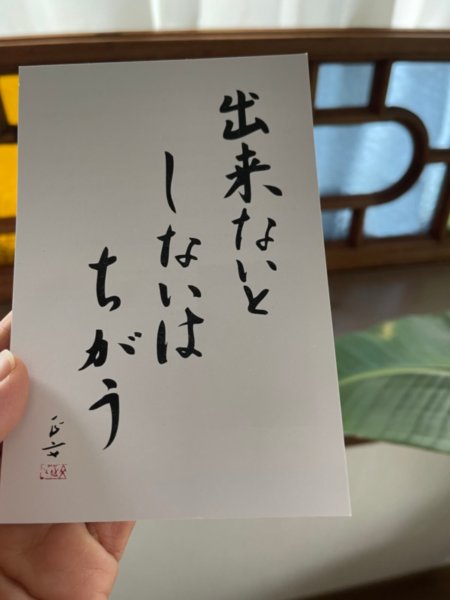 出来ないと
しないは
ちがう